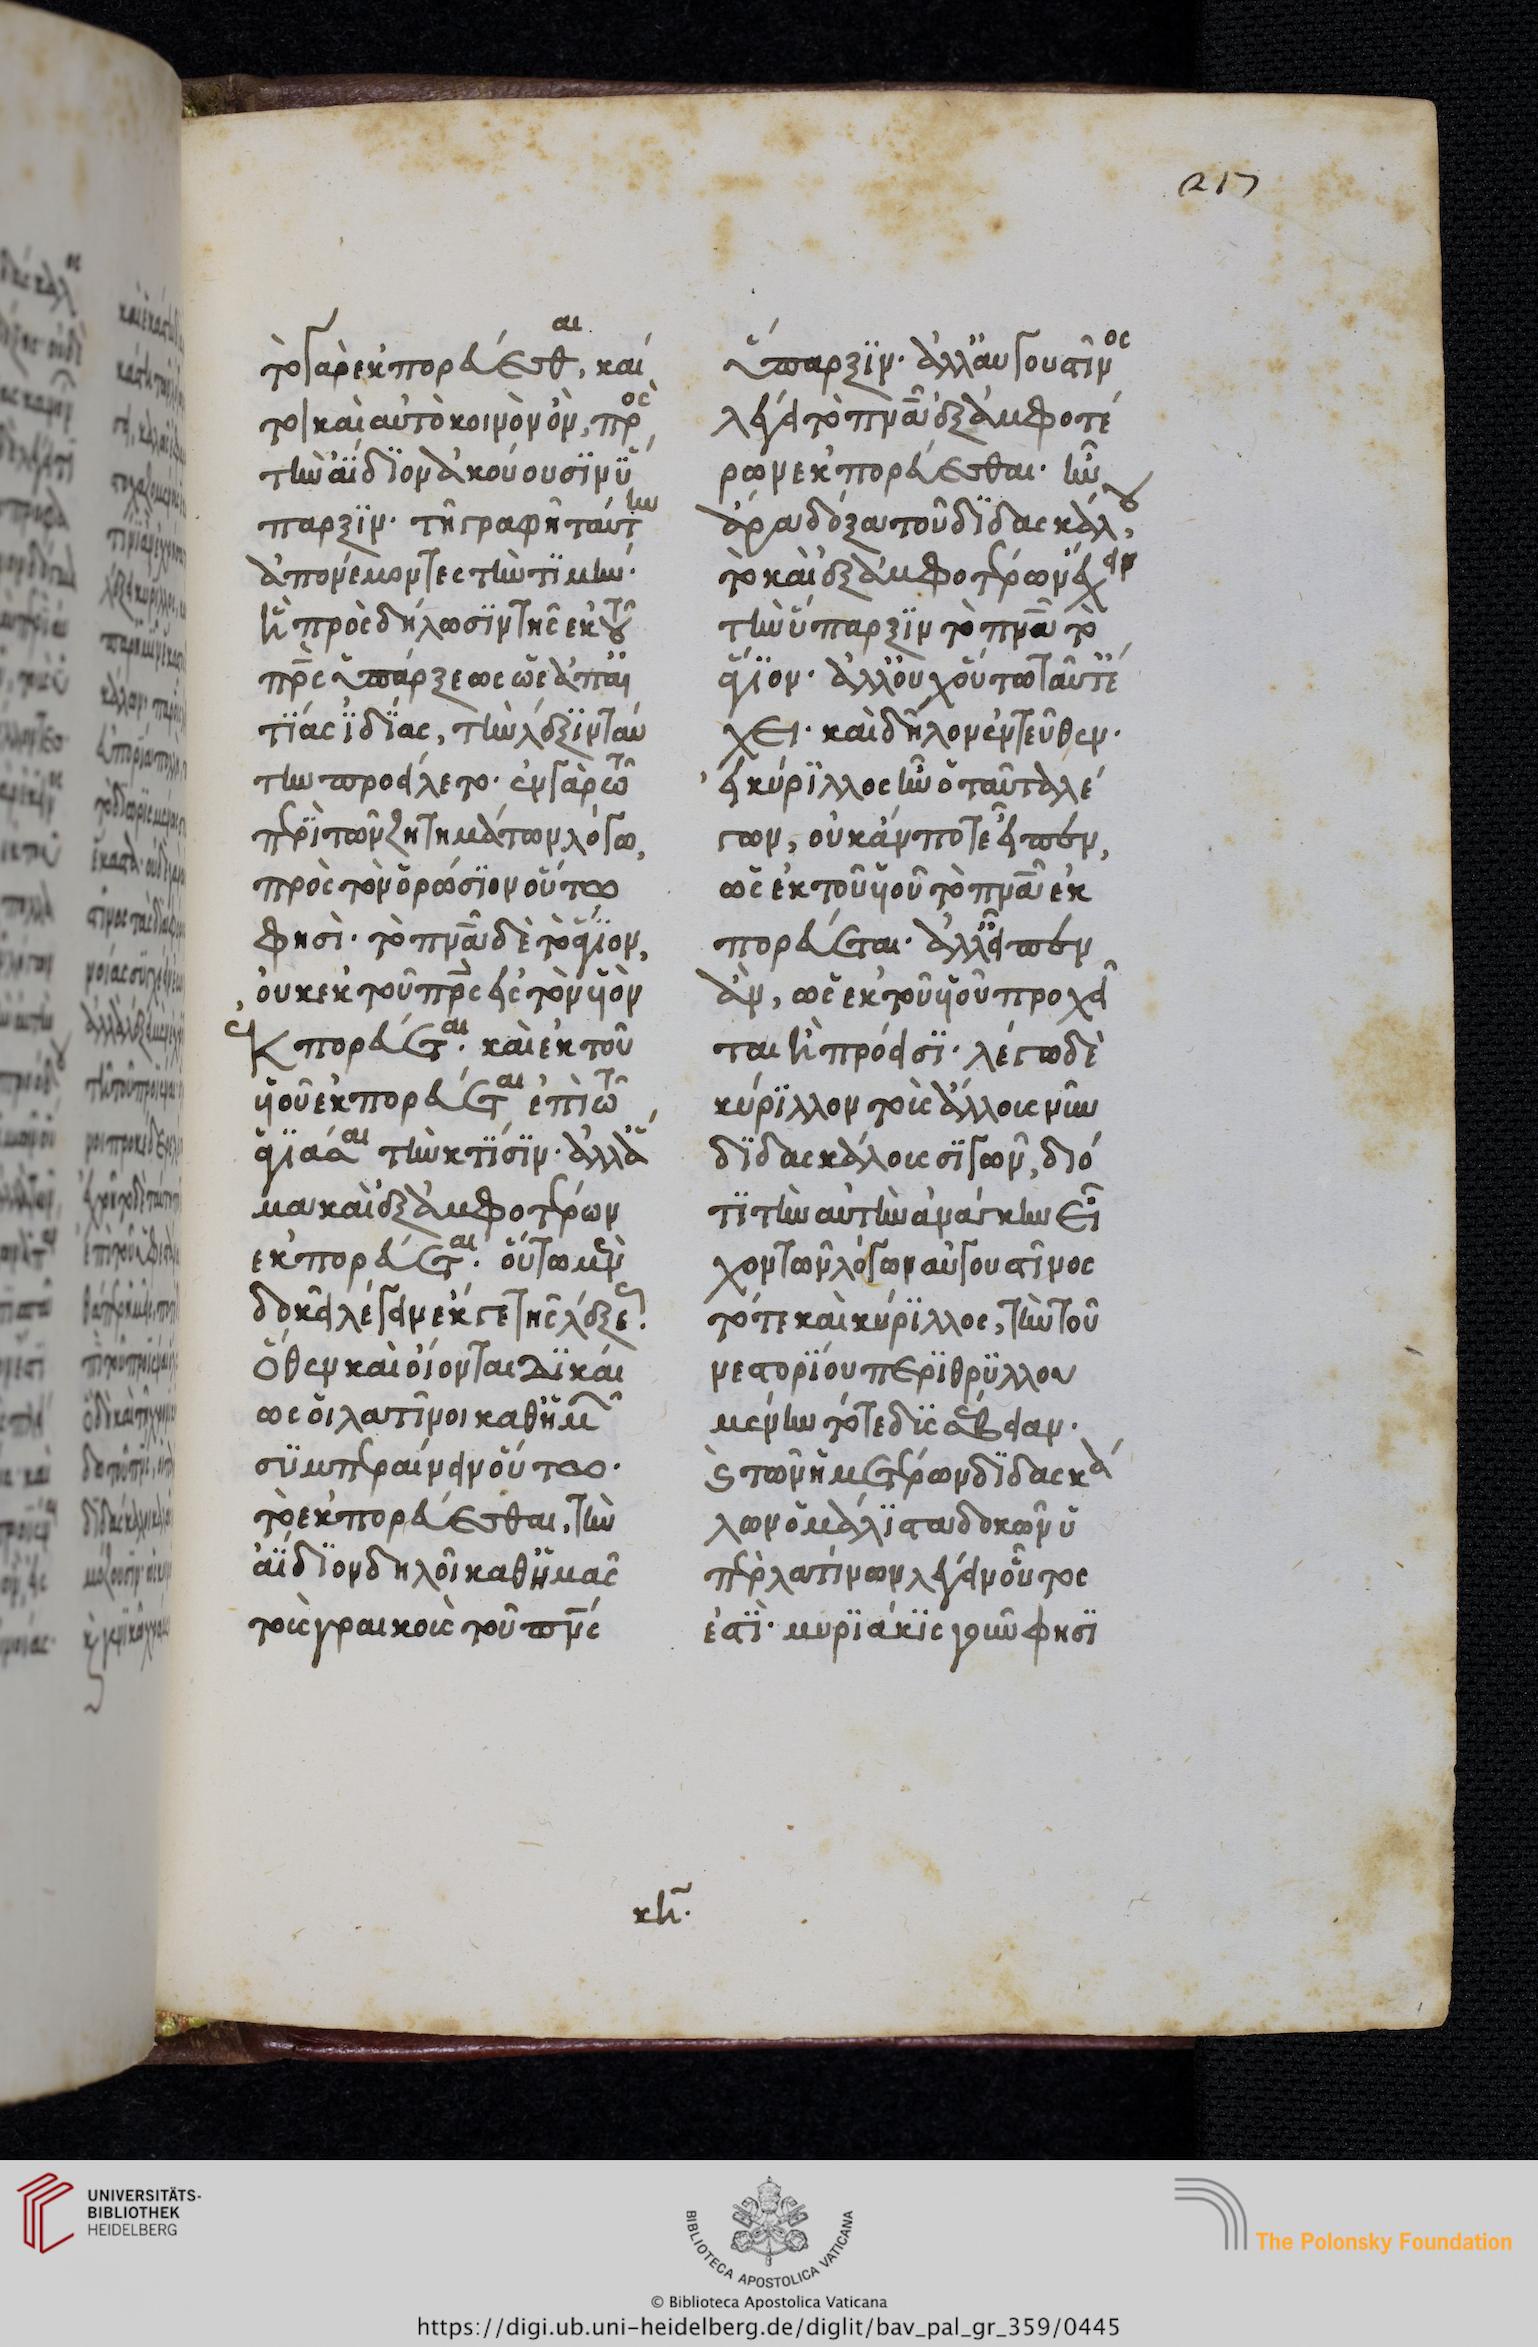 217
τὸ γὰρ ἐκπορεύεσθαι, καί
τοι καὶ αὐτὸ κοινὸν ὂν, πρὸς
τὴν ἀΐδϊον ἀκούουσϊν ὕ
παρξϊν· τῆ γραφῆ ταύτην
ἀπονέμοντες τὴν τϊμήν·
ἢ πρὸς δήλωσϊν τῆς ἐκ τοῦ
πρ̅ς ὑπάρξεως ὡς ἀπ' αἰ
τϊάς ϊδϊας, τὴν λέξϊν ταύ
την προσείλετο· ἐν γὰρ τῶ
περῒ τῶν ζητημάτων λόγω,
πρὸς τὸν ὀρώσϊον οὕτω
φησὶ· τὸ πνα̅ δὲ τὸ ἅγϊον,
οὐκ ἐκ τοῦ πρ̅ς εἰς τὸν υἱὸν
ἐκπορεύεται· καὶ ἐκ τοῦ
υἱοῦ ἐκπορεύεται ἐπὶ τῶ
ἁγϊάσαι τὴν κτΐσϊν· ἀλλ' ἅ
μα καὶ ἐξ ἀμφοτέρων
ἐκπορεύεται· οὕτω μὲν
δοκεῖ λέγειν ἔκ γε τῆς λέξεως.
Ὅθεν καὶ οἴονται δϊκαί
ως οἱ λατῖνοι καθ' ἡμῶν
συμπεραίνειν οὕτω·
τὸ ἐκπορεύεσθαι, τὴν
ἀΐδϊον δηλοῖ καθ' ἡμᾶς
τοὺς γραικοὺς τοῦ πν̅ς
ὕπαρξϊν· ἀλλ' αὐγουστῖνος
λέγει τὸ πνα̅ ἐξ ἀμφοτέ
ρων ἐκπορεύεσθαι· ἦν
ἄρα δόξα τοῦ δϊδασκάλου,
τὸ καὶ ἐξ ἀμφοτέρων ἔχειν
τὴν ὕπαρξϊν τὸ πνα̅ τὸ
ἅγϊον· ἀλλ' οὐχ οὕτω ταῦτ' ἔ
χει· καὶ δῆλον ἐντεῦθεν·
εἰ κύρϊλλος ἦν ὁ ταῦτα λέ
γων, οὐκ ἄν ποτε εἶπεν,
ὡς ἐκ τοῦ υἱοῦ τὸ πνα̅ ἐκ
πορεύεται· ἀλλ' εἶπεν
ἂν, ὡς ἐκ τοῦ υἱοῦ προχεῖ
ται ἢ πρόεισϊ· λέγω δὲ
κύρϊλλον τοὺς ἄλλους νῦν
δϊδασκάλους σϊγῶν, δϊό
τϊ τὴν αὐτὴν ἀνάγκην εἶ
χον τῶν λόγων αὐγουστῖνος
τότε καὶ κύρϊλλος, τὴν τοῦ
νεστορΐου περϊθρυλλου
μένην τότε δυσσέβειαν·
ὃς τῶν ἡμετέρων δϊδασκά
λων ὁ μάλϊστα δοκῶν ὑ
πὲρ λατίνων λέγειν οὗτος
ἐστῒ· μυρϊάκϊς γοῦν φησϊ
κη̅·
UNIVERSITÄTS-
BIBLIOTHEK
HEIDELBERG
BIBLIOTECA APOSTOLICA VATICANA
The Polonsky Foundation
© Biblioteca Apostolica Vaticana
https://digi.ub.uni-heidelberg.de/diglit/bav_pal_gr_359/0445